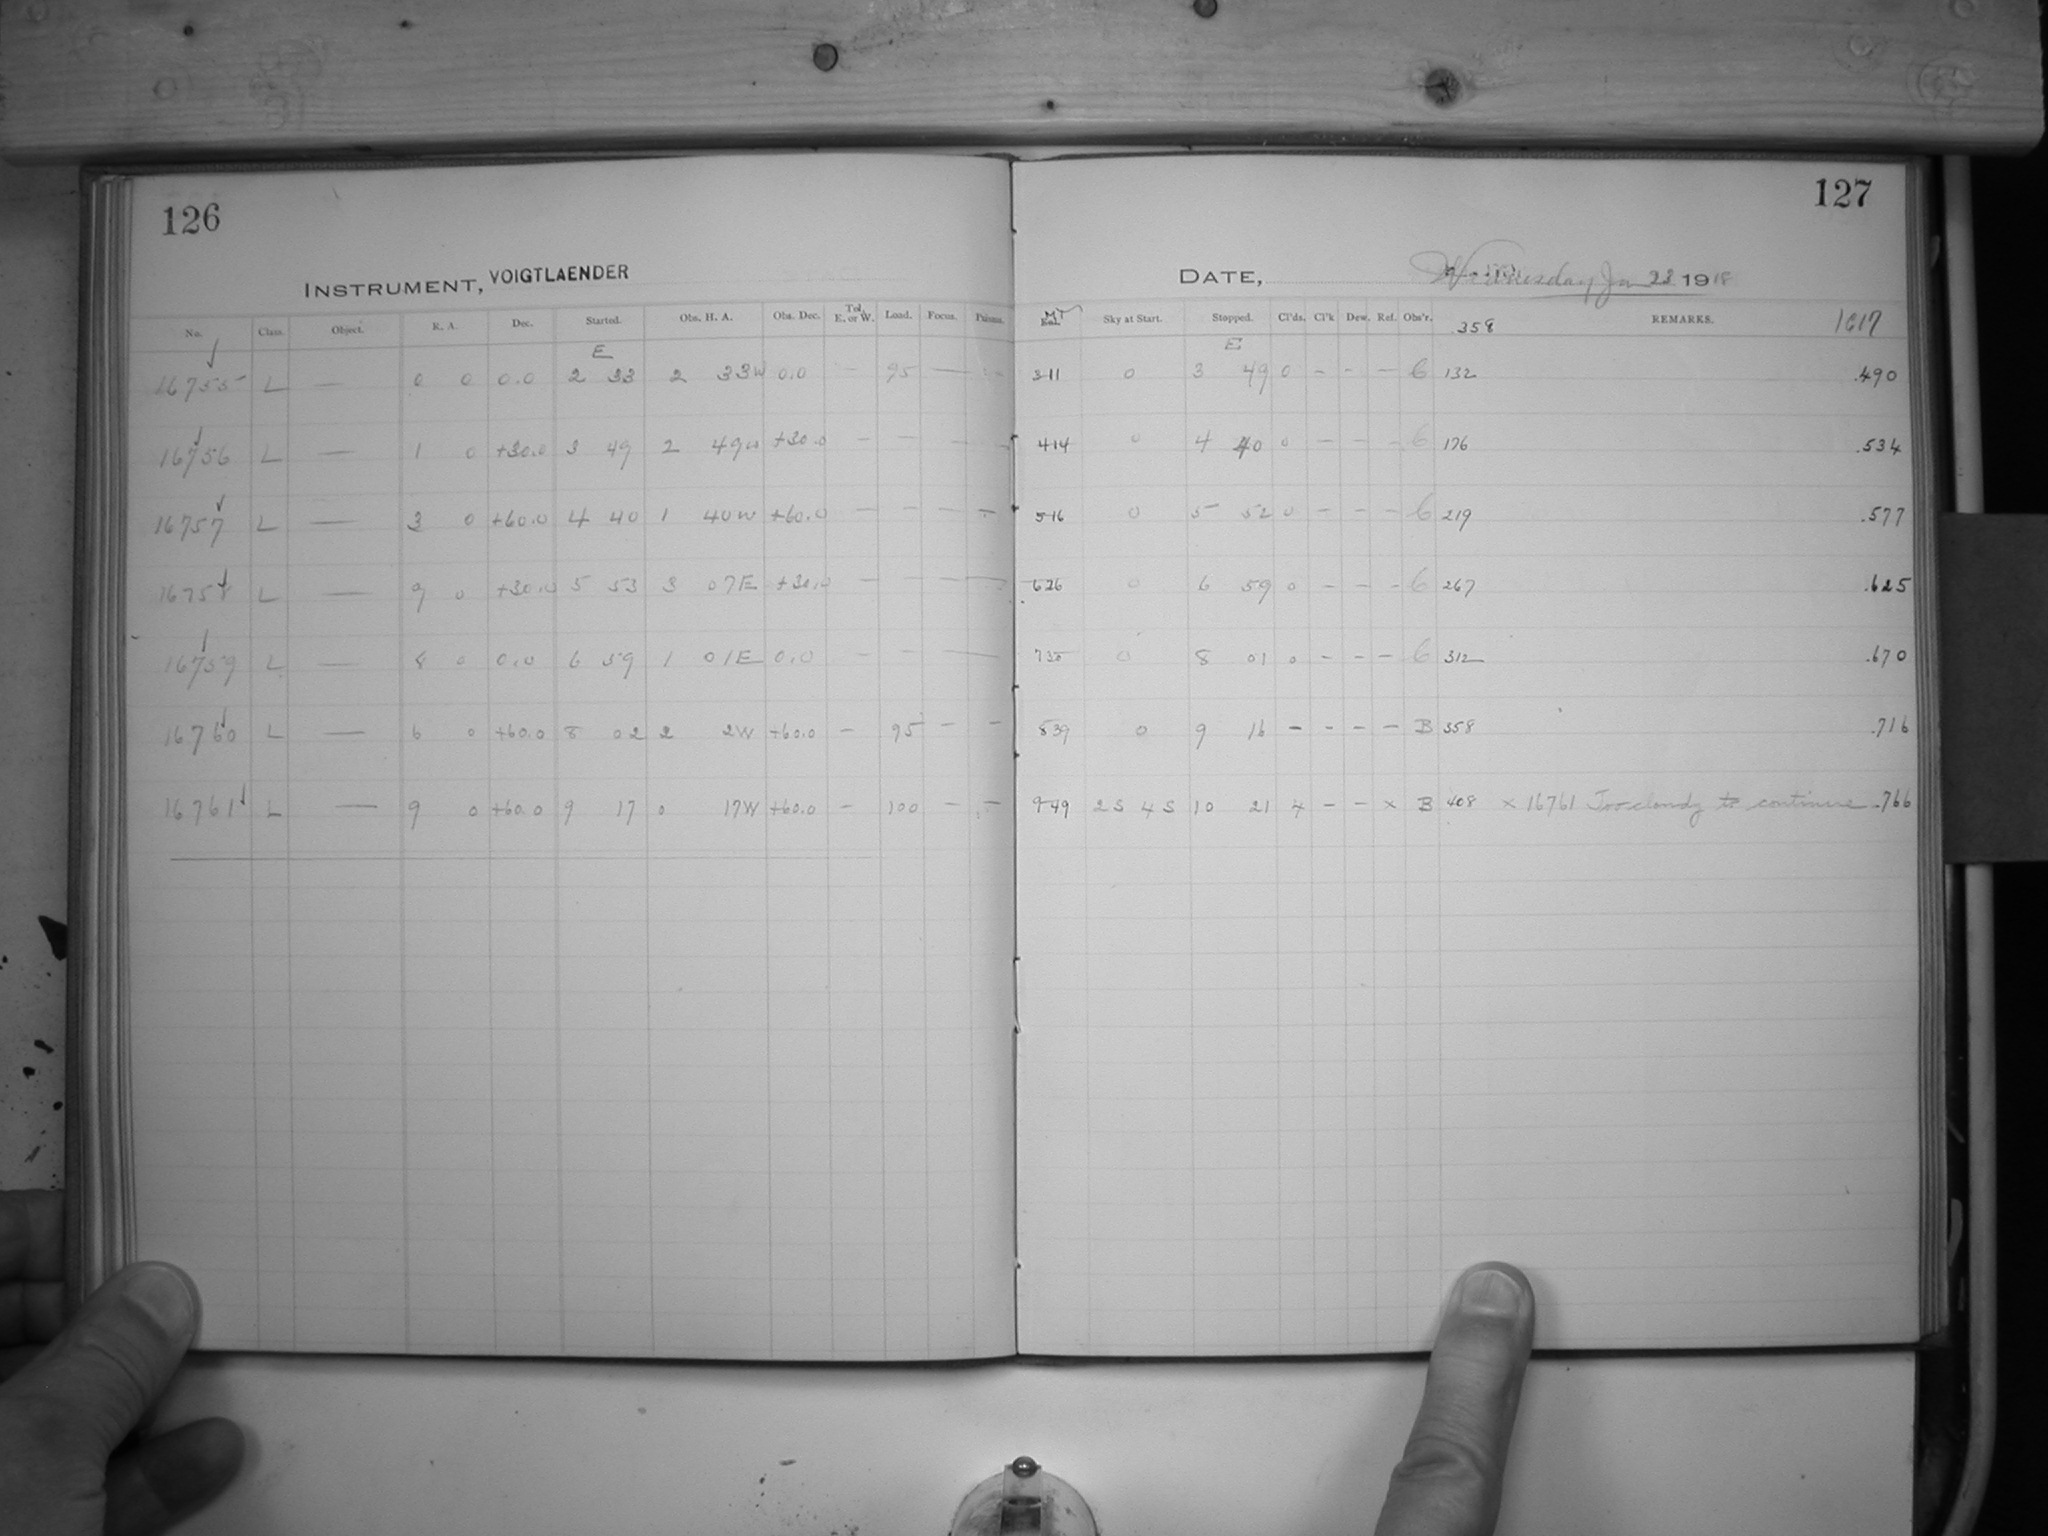 126
127
INSTRUMENT, VOIGTLAENDER
DATE, Wednesday Jan 23 1918
No. Class. Object. R. A. Dec. Started. Obs. H. A. Obs. Dec. Tel. E. or W. Load. Focus. Prisms. MT Sky at Start. Stopped. Cl'ds. Cl'k Dew. Ref. Obs'r. .358 REMARKS. 1617
E E
16755 L — 0 0 0.0 2 33 2 33W 0.0 — 95 — 311 0 3 49 0 - - - 6 132 .490
16756 L — 1 0 +30.0 3 49 2 49w +30.0 — — — 414 0 4 40 0 - - - 6 176 .534
16757 L — 3 0 +60.0 4 40 1 40w +60.0 — — — — 516 0 5 52 0 - - - 6 219 .577
16758 L — 9 0 +30.0 5 53 3 07E +30.0 — — — — 626 0 6 59 0 - - - 6 267 .625
16759 L — 8 0 0.0 6 59 1 01E 0.0 — — — 735 0 8 01 0 - - - 6 312 .670
16760 L — 6 0 +60.0 8 02 2 2W +60.0 — 95 — — 839 0 9 16 - - - - B 358 .716
16761 L — 9 0 +60.0 9 17 0 17W +60.0 — 100 — — 949 2S 4S 10 21 4 - - x B 408 x 16761 Too cloudy to continue .766